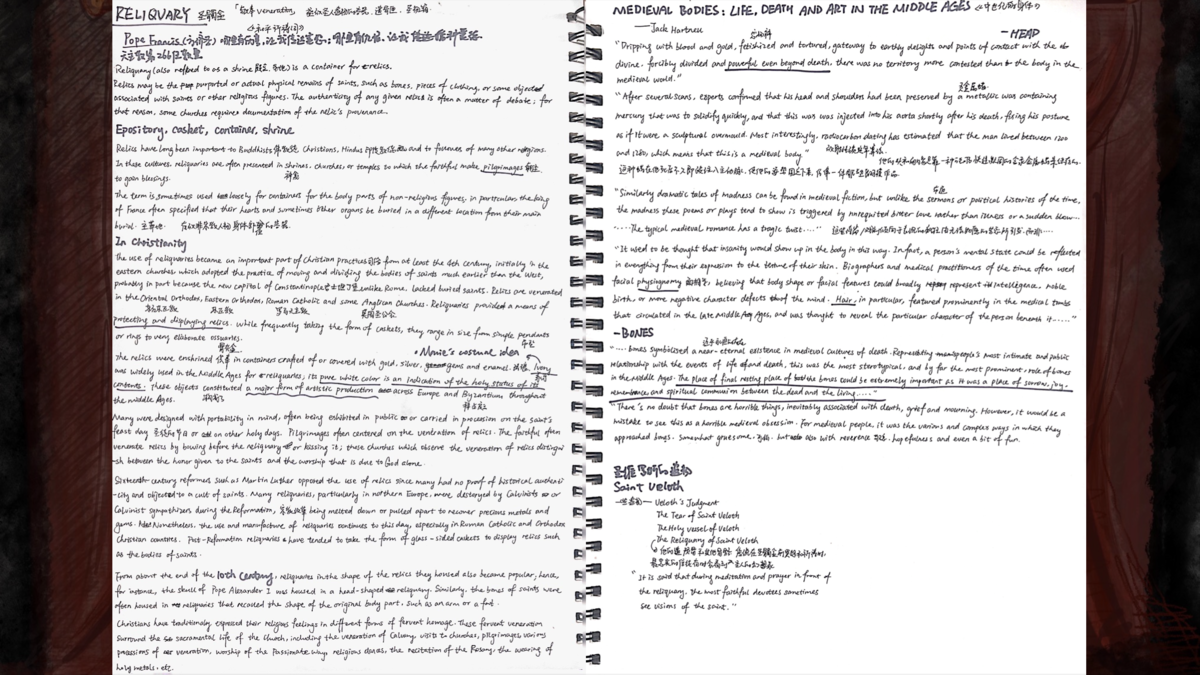 RELIQUARY 圣髑盒
Pope Francis (方济各) 哪里有仇恨, 让我播种
天主教第266任教皇
Reliquary (also reffered to as a shrine) is a container for relics.
Relics may be the purported or actual physical remains of saints, such as bones, pieces of clothing, or some object
associated with saints or other religious figures. The authenticity of any given relics is often a matter of debate; for
that reason, some churches require documentation of the relic's provenance.
Epository, casket, container, shrine
Relics have long been important to Buddhists 佛教徒, Christians, Hindus 印度教 and to followers of many other religions.
In these cultures, reliquaries are often presented in shrines, churches, or temples to which the faithful make pilgrimages 朝圣
to gain blessings. 神龛
The term is sometimes used loosely for containers for the body parts of non-religious figures, in particular the king
of France often specified that their hearts and sometimes other organs be buried in a different location from their main
burial.
In Christianity
The use of reliquaries became an important part of Christian practices from at least the 4th century, initially in the
eastern churches, which adopted the practice of moving and dividing the bodies of saints much earlier than the West,
probably in part because the new capital of Constantinople 君士坦丁堡, unlike Rome, lacked buried saints. Relics are venerated
in the Oriental Orthodox, Eastern Orthodox, Roman Catholic and some Anglican Churches. Reliquaries provided a means of
东正教 罗马天主教 英国圣公会
protecting and displaying relics. While frequently taking the form of caskets, they range in size from simple pendants
or rings to very elaborate ossuaries.
• Movie's costume idea
The relics were enshrined in containers crafted of or covered with gold, silver, gems and enamel. Ivory
was widely used in the Middle Ages for reliquaries; its pure white color is an indication of the holy status of its
contents. These objects constituted a major form of artistic production across Europe and Byzantium throughout
the middle Ages. 拜占庭
Many were designed with portability in mind, often being exhibited in public or carried in procession on the saint's
feast day or on other holy days. Pilgrimages often centered on the veneration of relics. The faithful often
venerate relics by bowing before the reliquary or kissing it; those churches which observe the veneration of relics distingui
-sh between the honor given to the saints and the worship that is due to God alone.
Sixteenth-century reformers such as Martin Luther opposed the use of relics since many had no proof of historical authenti
-city and objected to a cult of saints. Many reliquaries, particularly in northern Europe, were destroyed by Calvinists or
Calvinist sympathizers during the Reformation, being melted down or pulled apart to recover precious metals and
gems. Nonetheless, the use and manufacture of reliquaries continues to this day, especially in Roman Catholic and Orthodox
Christian countries. Post-Reformation reliquaries have tended to take the form of glass-sided caskets to display relics such
as the bodies of saints.
From about the end of the 10th Century, reliquaries in the shape of the relics they housed also become popular; hence,
for instance, the skull of Pope Alexander I was housed in a head-shaped reliquary. Similarly, the bones of saints were
often housed in reliquaries that recalled the shape of the original body part, such as an arm or a foot.
Christians have traditionally expressed their religious feelings in different forms of fervent homage. These fervent veneration
Surround the sacramental life of the Church, including the veneration of Calvary, visits to churches, pilgrimages, various
processions of veneration, worship of the Passionate way, religious dances, the recitation of the Rosary, the wearing of
holy metals, etc.
MEDIEVAL BODIES: LIFE, DEATH AND ART IN THE MIDDLE AGES 《中世纪的身体》
—Jack Hartnell
—HEAD
"Dripping with blood and gold, fetishized and tortured, gateway to earthly delights and points of contact with the
divine, forcibly divided and powerful even beyond death, there was no territory more contested than the body in the
medieval world."
"After several scans, experts confirmed that his head and shoulders had been preserved by a metallic wax containing
mercury that was to solidify quickly, and that this wax was injected into his aorta shortly after his death, fixing his posture
as if it were a sculptural overmould. Most interestingly, radiocarbon dating has estimated that the man lived between 1200
and 1280, which means that this is a medieval body."
"Similarly dramatic tales of madness can be found in medieval fiction, but unlike the sermons or political histories of the time,
the madness these poems or plays tend to show is triggered by unrequited bitter love rather than illness or a sudden blow...
......The typical medieval romance has a tragic twist....."
"It used to be thought that insanity would show up in the body in this way. In fact, a person's mental state could be reflected
in everything from their expression to the texture of their skin. Biographers and medical practitioners of the time often used
facial physiognomy 面相学, believing that body shape or facial features could broadly represent intelligence, noble
birth, or more negative character defects of the mind. Hair, in particular, featured prominently in the medical tombs
that circulated in the late Middle Ages, and was thought to reveal the particular character of the person beneath it......"
—BONES
".... bones symbolised a near-eternal existence in medieval cultures of death. Representing people's most intimate and public
relationship with the events of life and death, this was the most sterotypical, and by far the most prominent, role of bones
in the Middle Ages. The place of final resting place of the bones could be extremely important as it was a place of sorrow, joy,
remembrance, and spiritual communion between the dead and the living....."
"There's no doubt that bones are horrible things, inevitably associated with death, grief and mourning. However, it would be a
mistake to see this as a horrible medieval obsession. For medieval people, it was the various and complex ways in which they
approached bones. Somewhat gruesome, but also with reverence, hopefulness and even a bit of fun.
Saint Veloth
Veloth's Judgment
The Tear of Saint Veloth
The Holy vessel of Veloth
The Reliquary of Saint Veloth
"It is said that during meditation and prayer in front of
the reliquary, the most faithful devotees sometimes
see visions of the saint."